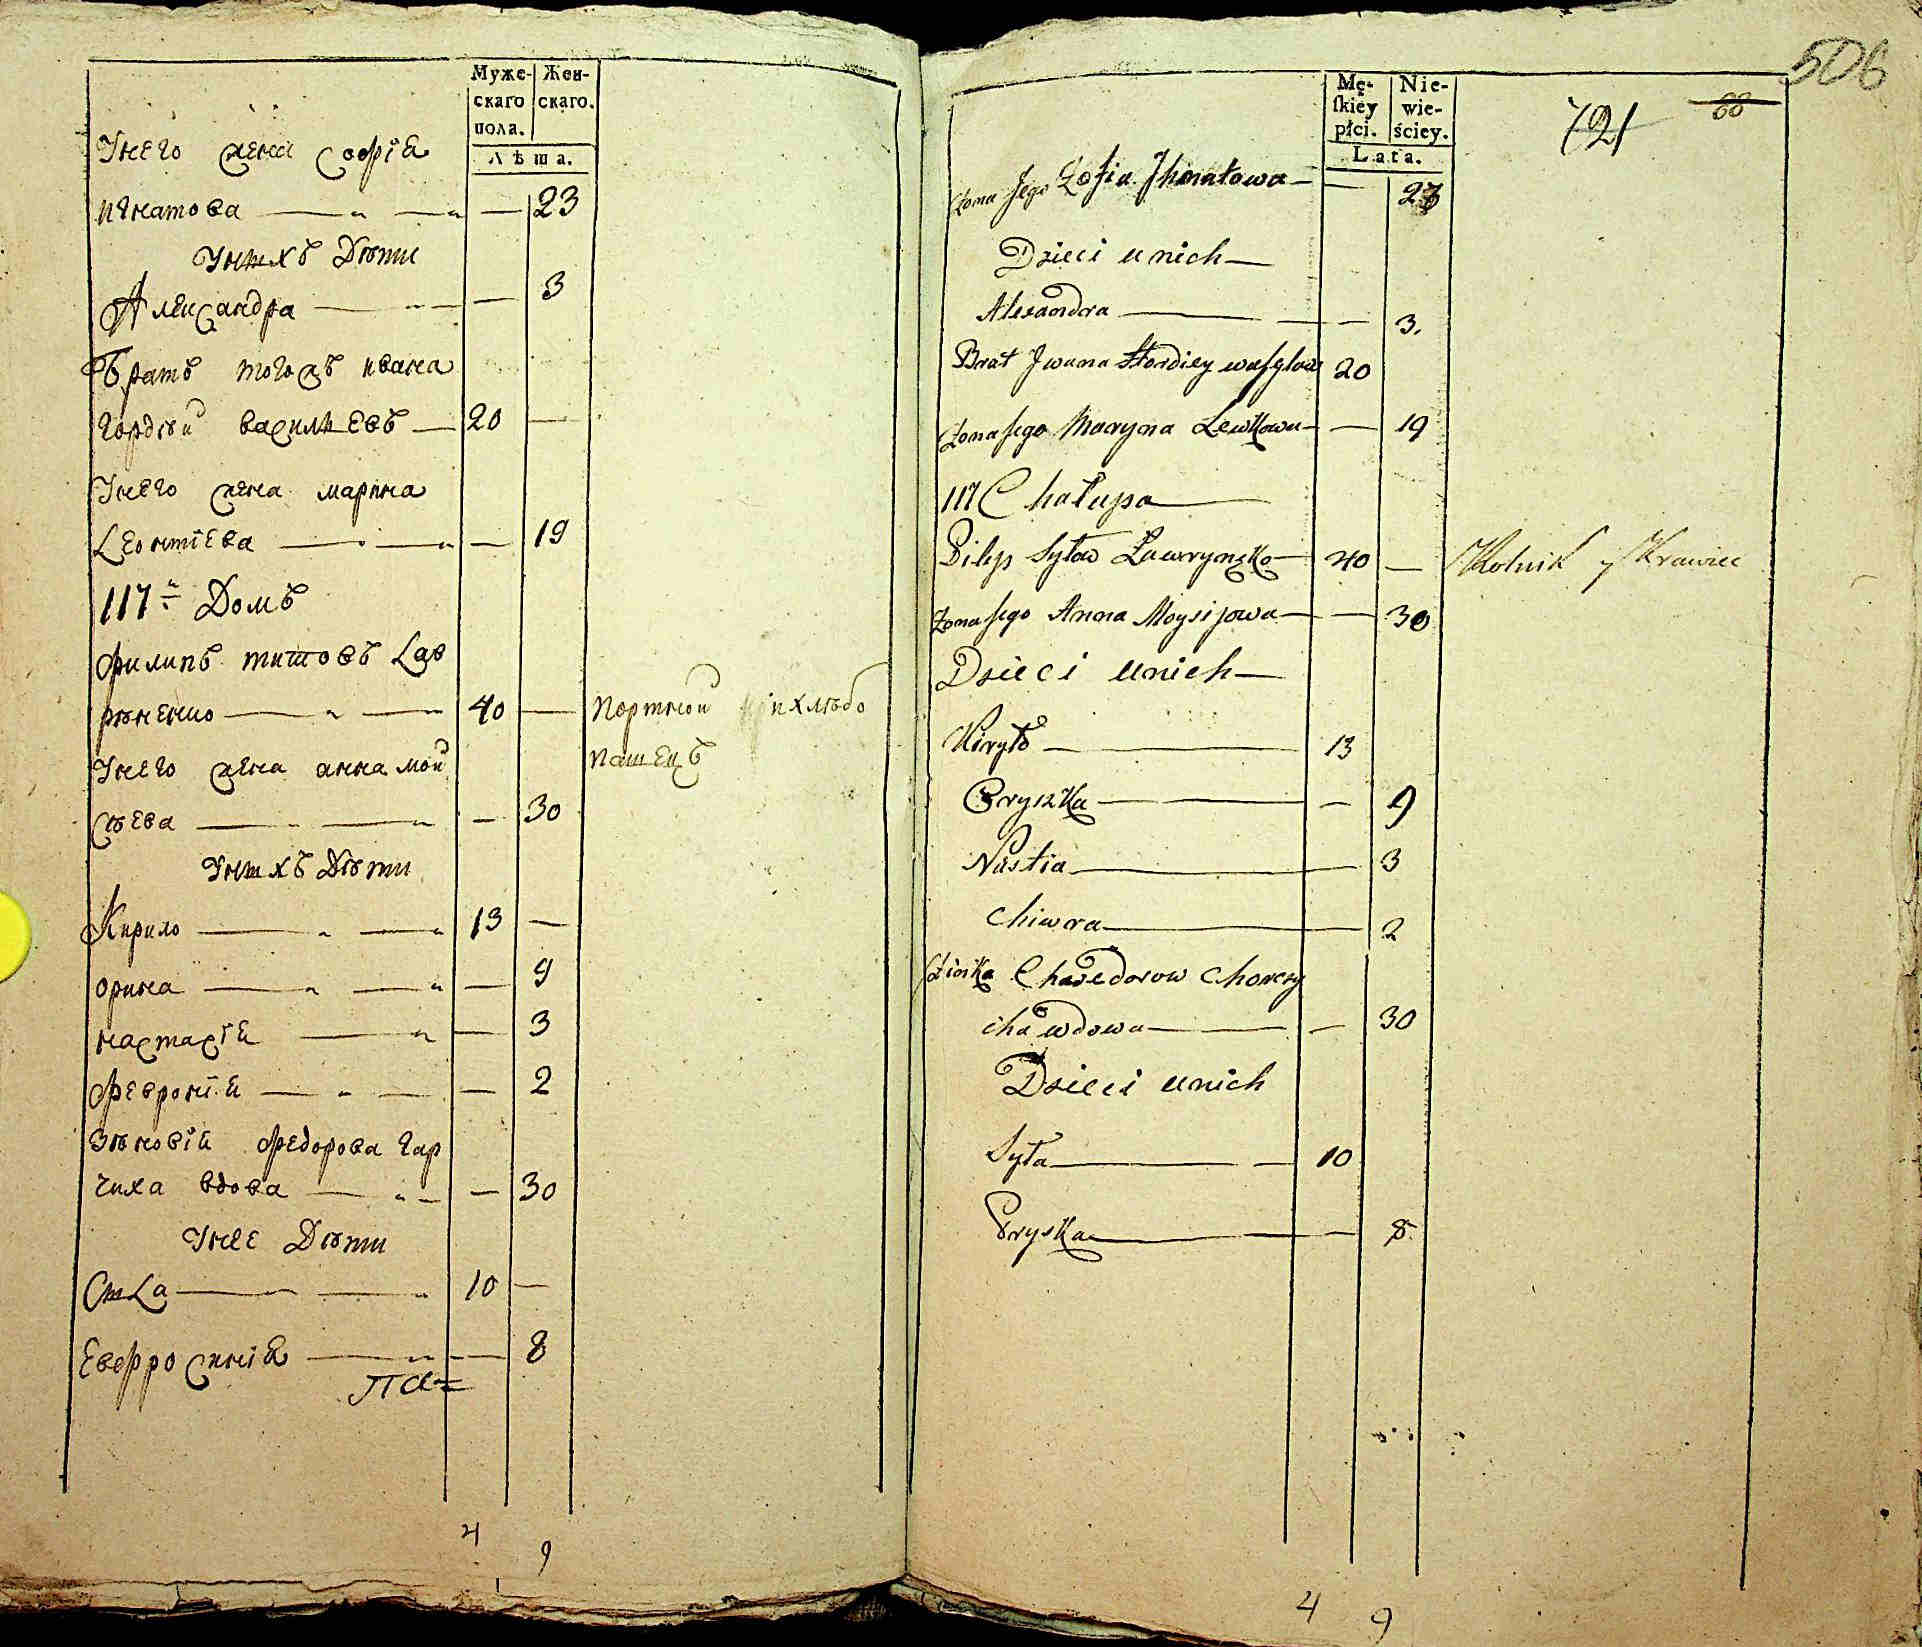 Муже- Жен-
скаго скаго.
пола.
Лѣта.
Унего жена Софіѧ
игнатова — — 23
Унихъ Дѣти
Александра — — 3
Братъ тогожъ ивана
Гордѣй васильевъ — 20 —
Унего жена марина
Леонтіева — — 19
117й Домъ
Филипъ титовъ Лав
рѣненко — 40 — портной и хлѣбо
пашецъ
Унего жена анна мой
сѣева — — 30
Унихъ Дѣти
Кирило — 13 —
орина — — 9
настасіѧ — — 3
Феврониѧ — — 2
Зѣновіѧ Федорова Гар
чиха вдова — — 30
Унее Дѣти
Сила — 10 —
Евфросиніѧ — — 8
4 9
506
68
721
Mę- Nie-
ſkiey wie-
płci. ściey.
Lata.
Żona Jego Zofia Jhnatowa — — 23
Dzieci u nich —
Alexandra — — 3.
Brat Jwana Hordiey wasylow 20
Żona Jego Maryna Lewkowa — — 19
117 Chałupa —
Pilip Tytow Ławrynęko — 40 — Rolnik y Krawiec
Żona Jego Anna Moysijowa — — 30
Dzieci u nich —
Kiryło — 13
Oryszka — — 9
Nastia — 3
Chiwra — 2
Zinka Chwedorow Chorczy
cha wdowa — — 30
Dzieci u nich
Syła — — 10
Pryska — — 8
4 9